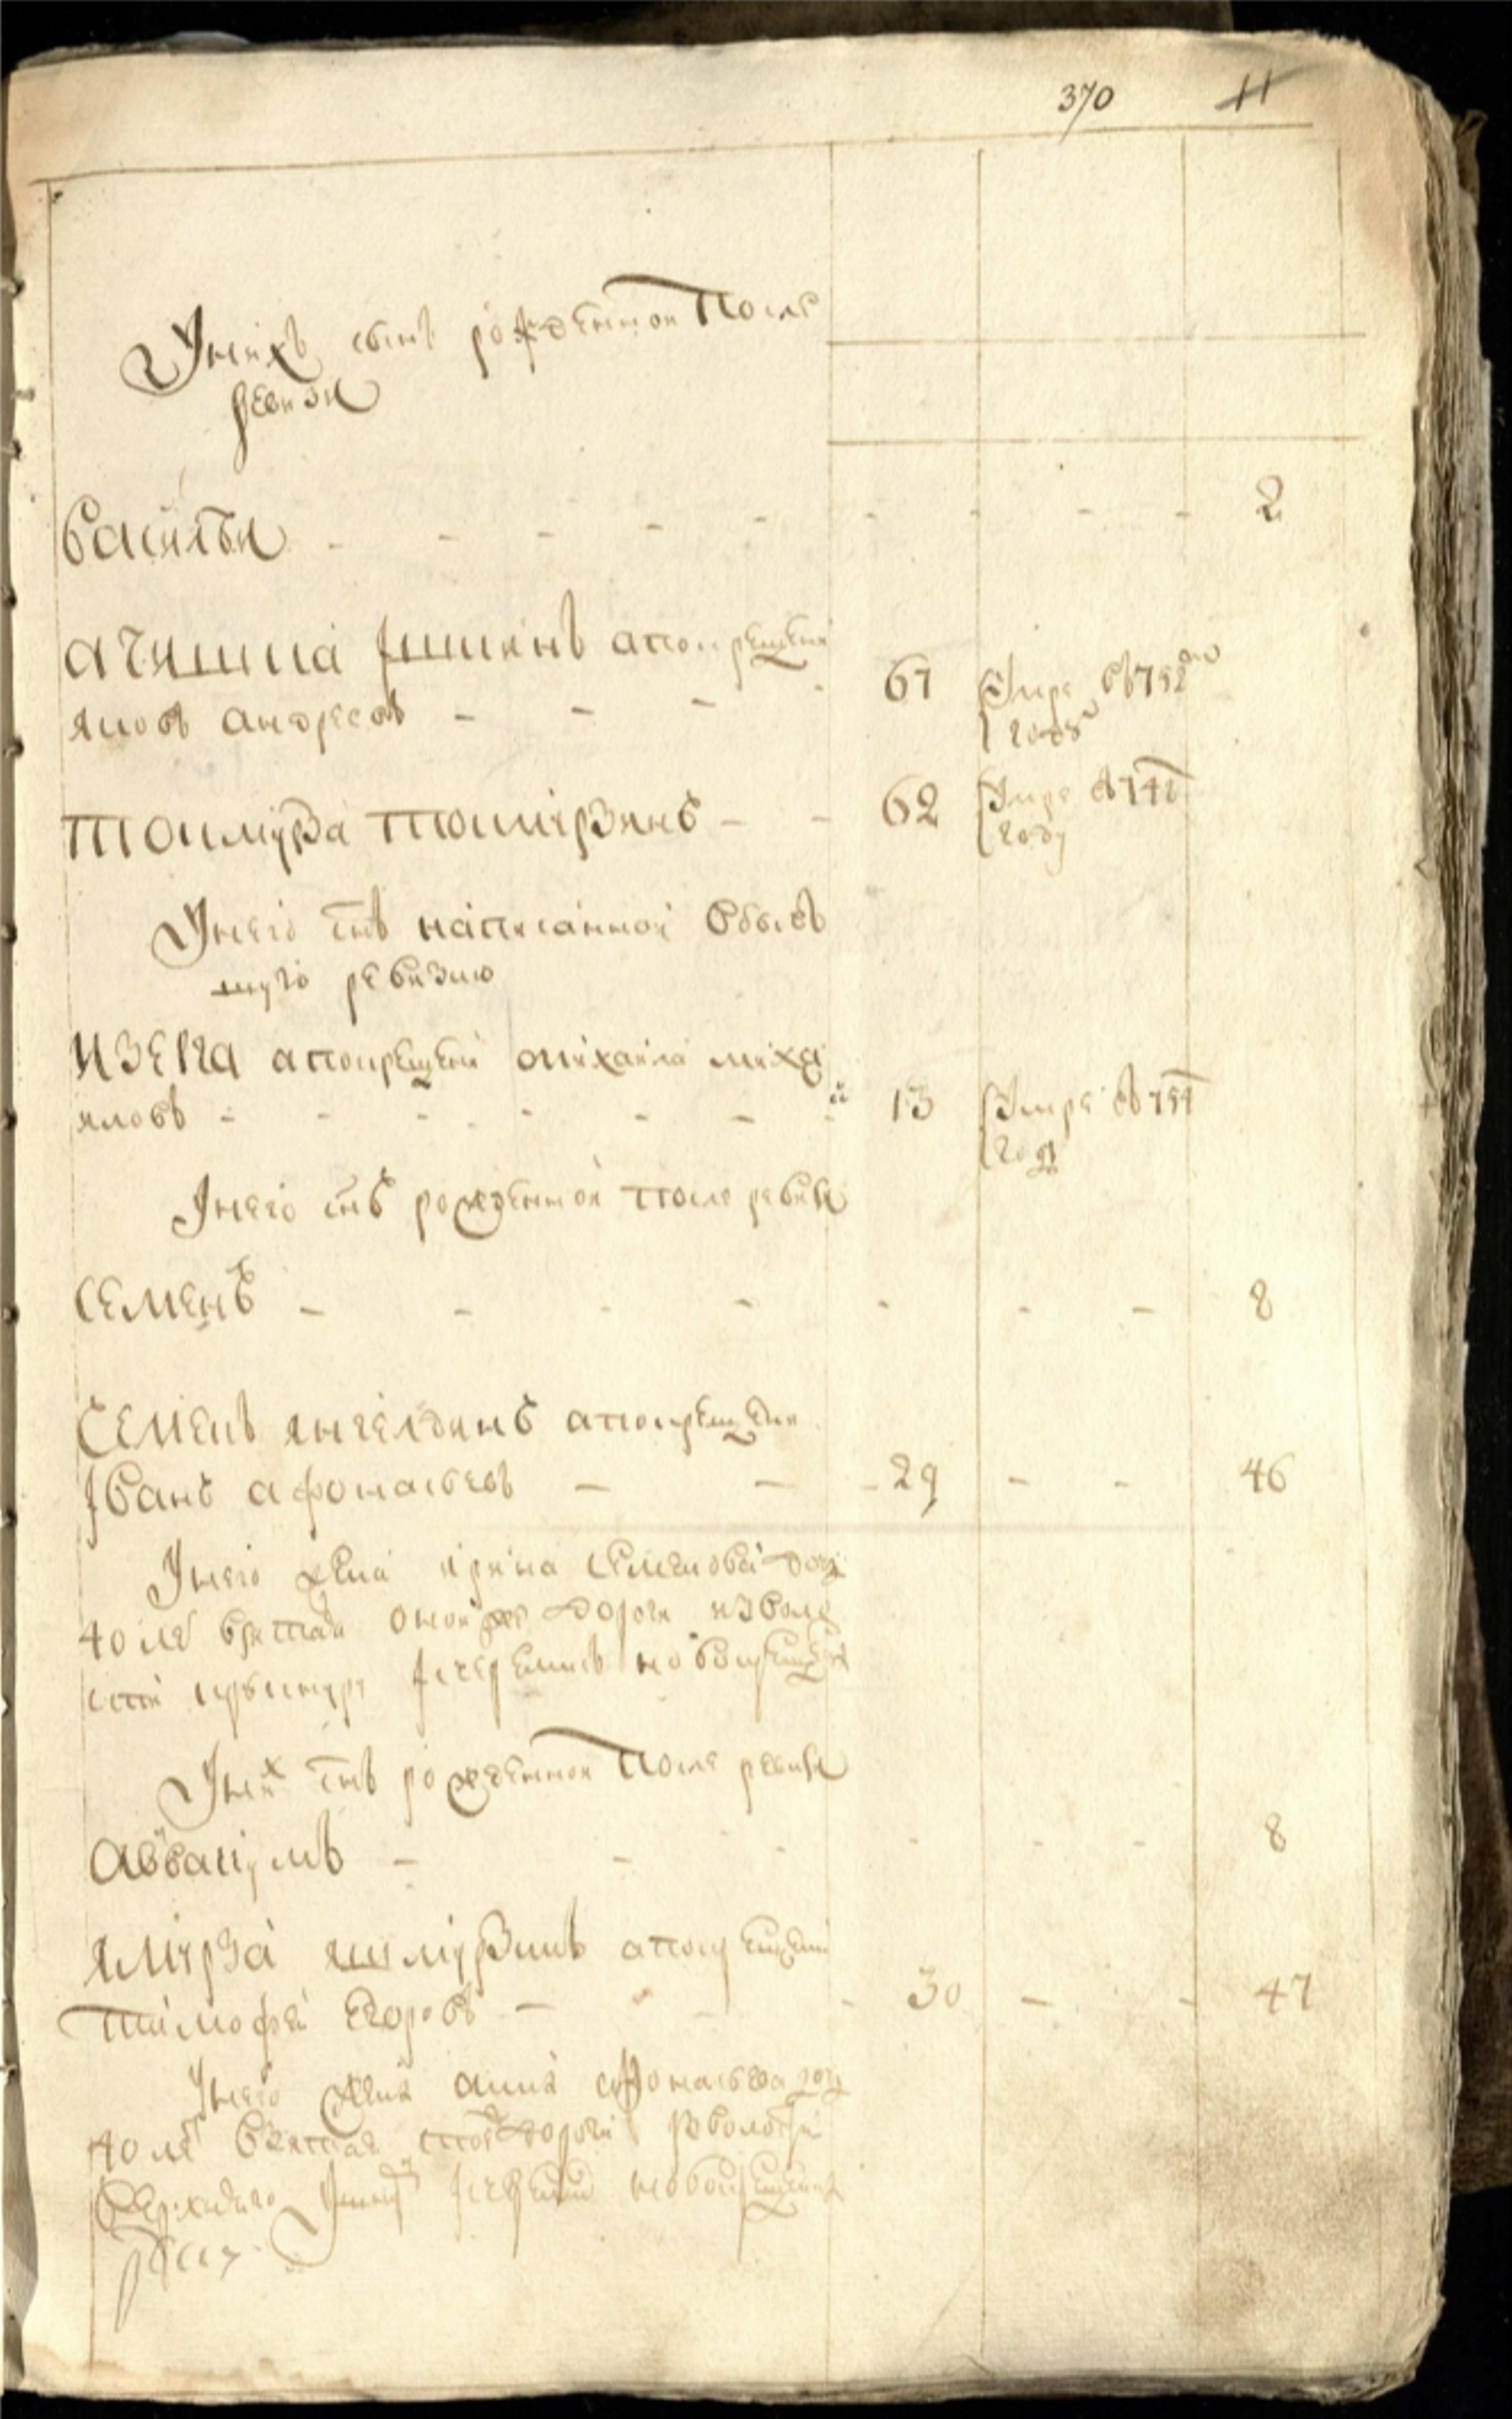 370 11
У них сынъ рожденной после
ревизи
Василеи - - - - - - - - 2
а по крещени
яковъ андреевъ - - - 61 умре въ 752 м
году
Тоимурза - - 62 умре в 742
году
У него снъ написанной в бывъ
шую ревизию
Изерга а по крещени михаила миха
иловъ - - - - - - 13 умре въ 751
году
У него снъ рожденной после ревизи
Семенъ - - - - - - - 8
Семенъ янгелдинъ а по крещени
Iванъ афонасьевъ - - - 29 - - 46
У него жена ирина Семенова дочь
40 летъ взятая оной же дороги из воло
сти iсчеремисъ новокрещен
У них снъ рожденной после ревизи
Аввакумъ - - - - - - 8
Ямурза а по крещени
тимофеи Егоровъ - - - 30 - - 47
У него жена анна афонасьева дочь
40 летъ взятая той дороги iз волости
iсчеремис новокрещенъ